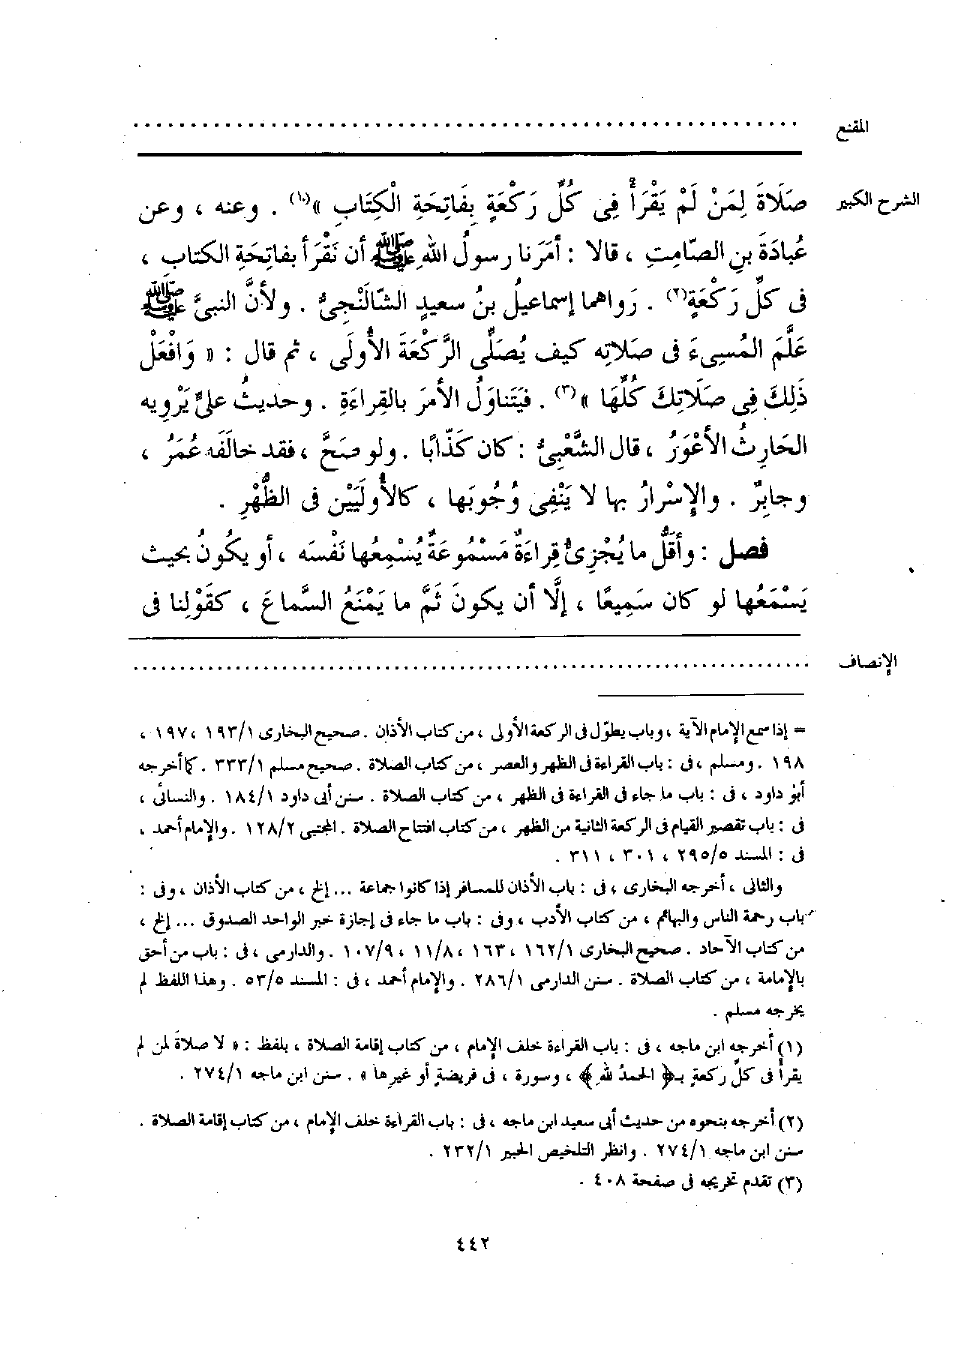 المقنع
الشرح الكبير
صَلَاةَ لِمَنْ لَمْ يَقْرَأْ فِى كُلِّ رَكْعَةٍ بِفَاتِحَةِ الْكِتَابِ »(١) . وعنه ، وعن
عُبادَةَ بنِ الصّامِتِ ، قالا : أمَرَنا رسولُ اللهِ ﷺ أن نَقْرَأ بفاتحةِ الكتابِ ،
فى كلِّ رَكْعَةٍ(٢) . رَواهما إسماعيلُ بنُ سعيدٍ الشّالَنْجِىُّ . ولأنَّ النبىَّ ﷺ
عَلَّمَ المُسِىءَ فى صَلاتِه كيف يُصَلِّى الرَّكْعَةَ الأُولَى ، ثم قال : « وَافْعَلْ
ذَلِكَ فِى صَلَاتِكَ كُلِّهَا »(٣) . فيَتَناوَلُ الأمرَ بالقِراءَةِ . وحديثُ علىٍّ يَرْوِيه
الحَارِثُ الأعْوَرُ ، قال الشَّعْبِىُّ : كان كَذّابًا . ولو صَحَّ ، فقد خالَفَه عُمَرُ ،
وجابِرٌ . والإِسْرارُ بها لا يَنْفِى وُجُوبَها ، كالأُولَيَيْن فى الظُّهْرِ .
فصل : وأقَلُّ ما يُجْزِئُ قِراءَةٌ مَسْمُوعَةٌ يُسْمِعُها نَفْسَه ، أو يكُونُ بحيث
يَسْمَعُها لو كان سَمِيعًا ، إلَّا أن يكونَ ثَمَّ ما يَمْنَعُ السَّماعَ ، كقَوْلِنا فى
الإنصاف
= إذا سمع الإمام الآية ، وباب يطوّل فى الركعة الأولى ، من كتاب الأذان . صحيح البخارى ١٩٣/١ ، ١٩٧ ،
١٩٨ . ومسلم ، فى : باب القراءة فى الظهر والعصر ، من كتاب الصلاة . صحيح مسلم ٣٣٣/١ . كما أخرجه
أبو داود ، فى : باب ما جاء فى القراءة فى الظهر ، من كتاب الصلاة . سنن أبى داود ١٨٤/١ . والنسائى ،
فى : باب تقصير القيام فى الركعة الثانية من الظهر ، من كتاب افتتاح الصلاة . المجتبى ١٢٨/٢ . والإمام أحمد ،
فى : المسند ٢٩٥/٥ ، ٣٠١ ، ٣١١ .
والثانى ، أخرجه البخارى ، فى : باب الأذان للمسافر إذا كانوا جماعة ... إلخ ، من كتاب الأذان ، وفى :
باب رحمة الناس والبهائم ، من كتاب الأدب ، وفى : باب ما جاء فى إجازة خبر الواحد الصدوق ... إلخ ،
من كتاب الآحاد . صحيح البخارى ١٦٢/١ ، ١٦٣ ، ١١/٨ ، ١٠٧/٩ . والدارمى ، فى : باب من أحق
بالإمامة ، من كتاب الصلاة . سنن الدارمى ٢٨٦/١ . والإمام أحمد ، فى : المسند ٥٣/٥ . وهذا اللفظ لم
يخرجه مسلم .
(١) أخرجه ابن ماجه ، فى : باب القراءة خلف الإمام ، من كتاب إقامة الصلاة ، بلفظ : « لا صلاةَ لمن لم
يقرأْ فى كلِّ ركعةٍ بـ﴿ الحمدُ للهِ ﴾ ، وسورة ، فى فريضةٍ أو غيرها » . سنن ابن ماجه ٢٧٤/١ .
(٢) أخرجه بنحوه من حديث أبى سعيد ابن ماجه ، فى : باب القراءة خلف الإمام ، من كتاب إقامة الصلاة .
سنن ابن ماجه ٢٧٤/١ . وانظر التلخيص الحبير ٢٣٢/١ .
(٣) تقدم تخريجه فى صفحة ٤٠٨ .
٤٤٢